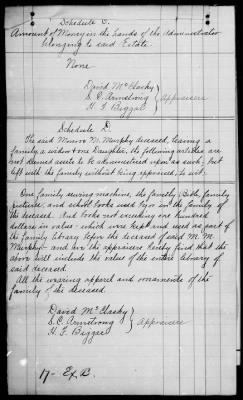 Schedule C.
Amount of Money in the hands of the Administrator
belonging to said Estate.
None
David McClasky
S. C. Armstrong } Appraisers
H. F. Bigger
Schedule D.
The said Munro M. Murphy deceased, leaving a
family a widow & one Daughter, the following articles are
not deemed assets to be administered upon as such, but
left with the family without being appraised, to wit:
One family sewing machine, the family Bible family
pictures, and school books used by or in the family of
the deceased. And books not exceeding one hundred
dollars in value which were kept and used as part of
the family library before the decease of said M. M.
Murphy and we the appraisers hereby find that the
above will include the value of the entire library of
said deceased.
All the wearing apparel and ornaments of the
family of the deceased.
David McClasky
S. C. Armstrong } Appraisers
H. F. Bigger
17- Ex. B.